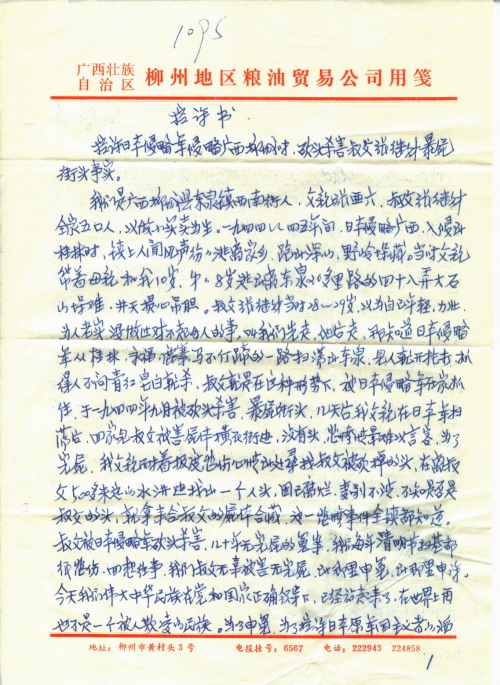 1095
广西壮族
自治区
柳州地区粮油贸易公司用笺
控诉书
控诉日军侵略军侵略广西柳州时，砍头杀害叔父张继针暴屍
街头事实。
我们是广西柳州 东泉镇西南街人，父亲张亚六，叔父张继针
全家五口人，以做小买卖为生。一九四四／四五年间，日军侵略广西，入侵
桂林时，镇上人闻风声 逃离家乡，跑山深山，野岭 藏。当时父亲
带着母亲和我10岁，弟8岁逃离东泉20多里路的四十八弄大石
山 难，并天 心吊胆。叔父张继针当时28—29岁，以为自己年轻，力壮，
为人老实，没做过对不起 人的事，叫我们先走，他后走，那知道日军侵略
军从桂林、永福 一路扫荡 东泉，见人就开枪打，抓
得人不问青红皂白就杀，叔父就是在这种形势下，被日军侵略军 抓
住，于一九四四年九月被砍头杀害，暴屍街头，几天后我父亲在日军车扫
荡后，回家见叔父被害屍体横在街边，没有头，悲惨情景难以言容，为了
完屍，我父亲 着极度悲伤心情 处寻找叔父被砍掉的头，在离叔
父500多米远的水沟边找出一个人头，因已腐烂，看别不清，不知是否是
叔父的头，就拿来合叔父的屍体合葬，这一悲惨事件全镇都知道。
叔父被日军侵略军砍头杀害，几十年无完屍的冤案，我们每年清明节扫墓都
很悲伤，回想往事，我们叔父无辜被害无完屍，到那里申冤，到那里申诉。
今天我们伟大中华民族在党和国家正确领导下，已经站起来了，在世界上再
也不是一个被人欺凌的民族。为了申冤，为了控诉日本原军国主义者的滔
地址：柳州市黄村头3号
电报挂号：6567
电话：222943 224858
1